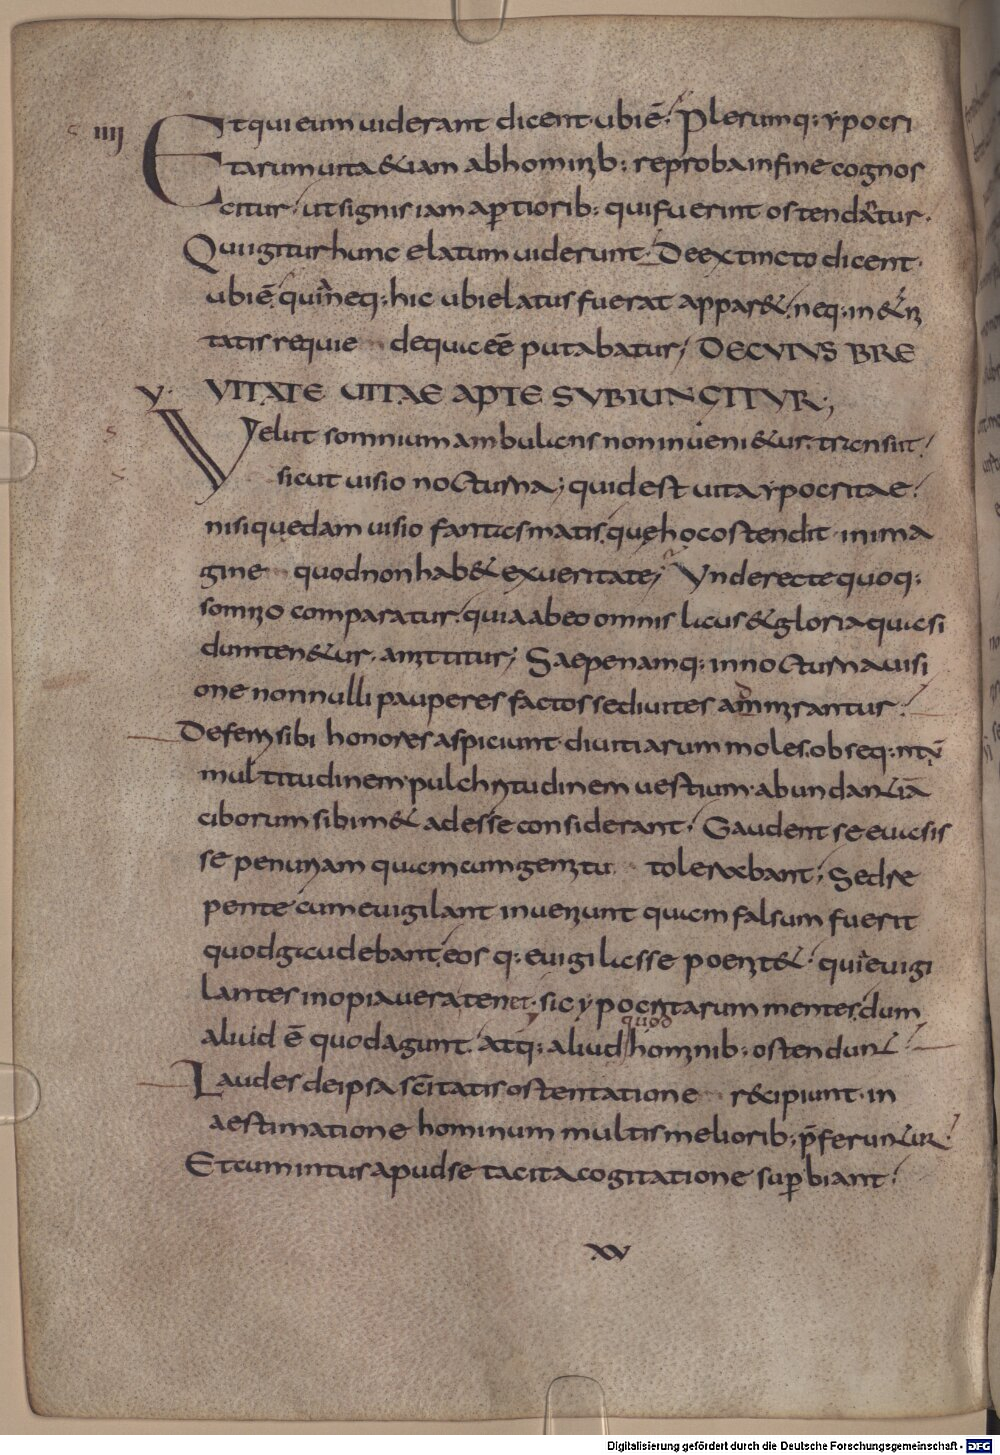 IIII Et qui eum uiderant dicent· ubi ē; Plerumq; ypocri
tarum uita &iam ab hominib; reproba in fine cognos
citur· ut signis iam aptiorib; qui fuerint ostendatur·
Qui igitur hunc elatum uiderunt· De extincto dicent·
ubi ē, quia neq; hic ubi elatus fuerat appar&, neq; in &ni
tatis requie de qua eē putabatur; DE CUIUS BRE
V· UITATE UITAE APTE SUBIUNGITUR;
Velut somnium ambulans non inueni&ur, transiit
sicut uisio nocturna; quid est uita ypocritae·
nisi quedam uisio fantasmatis, quę hoc ostendit in ima
gine quod non hab& ex ueritate; Unde recte quoq;
somnio comparatur, quia ab eo omnis laus & gloria quasi
dum ten&ur, amittitur; Saepe namq; in nocturna uisi
one nonnulli pauperes factos se diuites ammirantur·
Deferri sibi honores aspiciunt· diuitiarum moles, obseq;ntiū
multitudinem· pulchritudinem uestium· abundantiā
ciborum sibim& adesse considerant· Gaudent se euasis
se penuriam quam cum gemitu tolerabant; Sed re
pente cum euigilant inueniunt quam falsum fuerit
quod gaudebant, eosq; euigilasse poenit&· quia euigi
lantes inopia uera ten&; sic ypocritarum mentes, dum
aliud ē quod agunt, atq; aliud quod hominib; ostendunt·
Laudes de ipsa scītatis ostentatione recipiunt· in
aestimatione hominum multis meliorib; pferuntur·
Et cum intus apud se tacita cogitatione supbiant·
xv
Digitalisierung gefördert durch die Deutsche Forschungsgemeinschaft - DFG